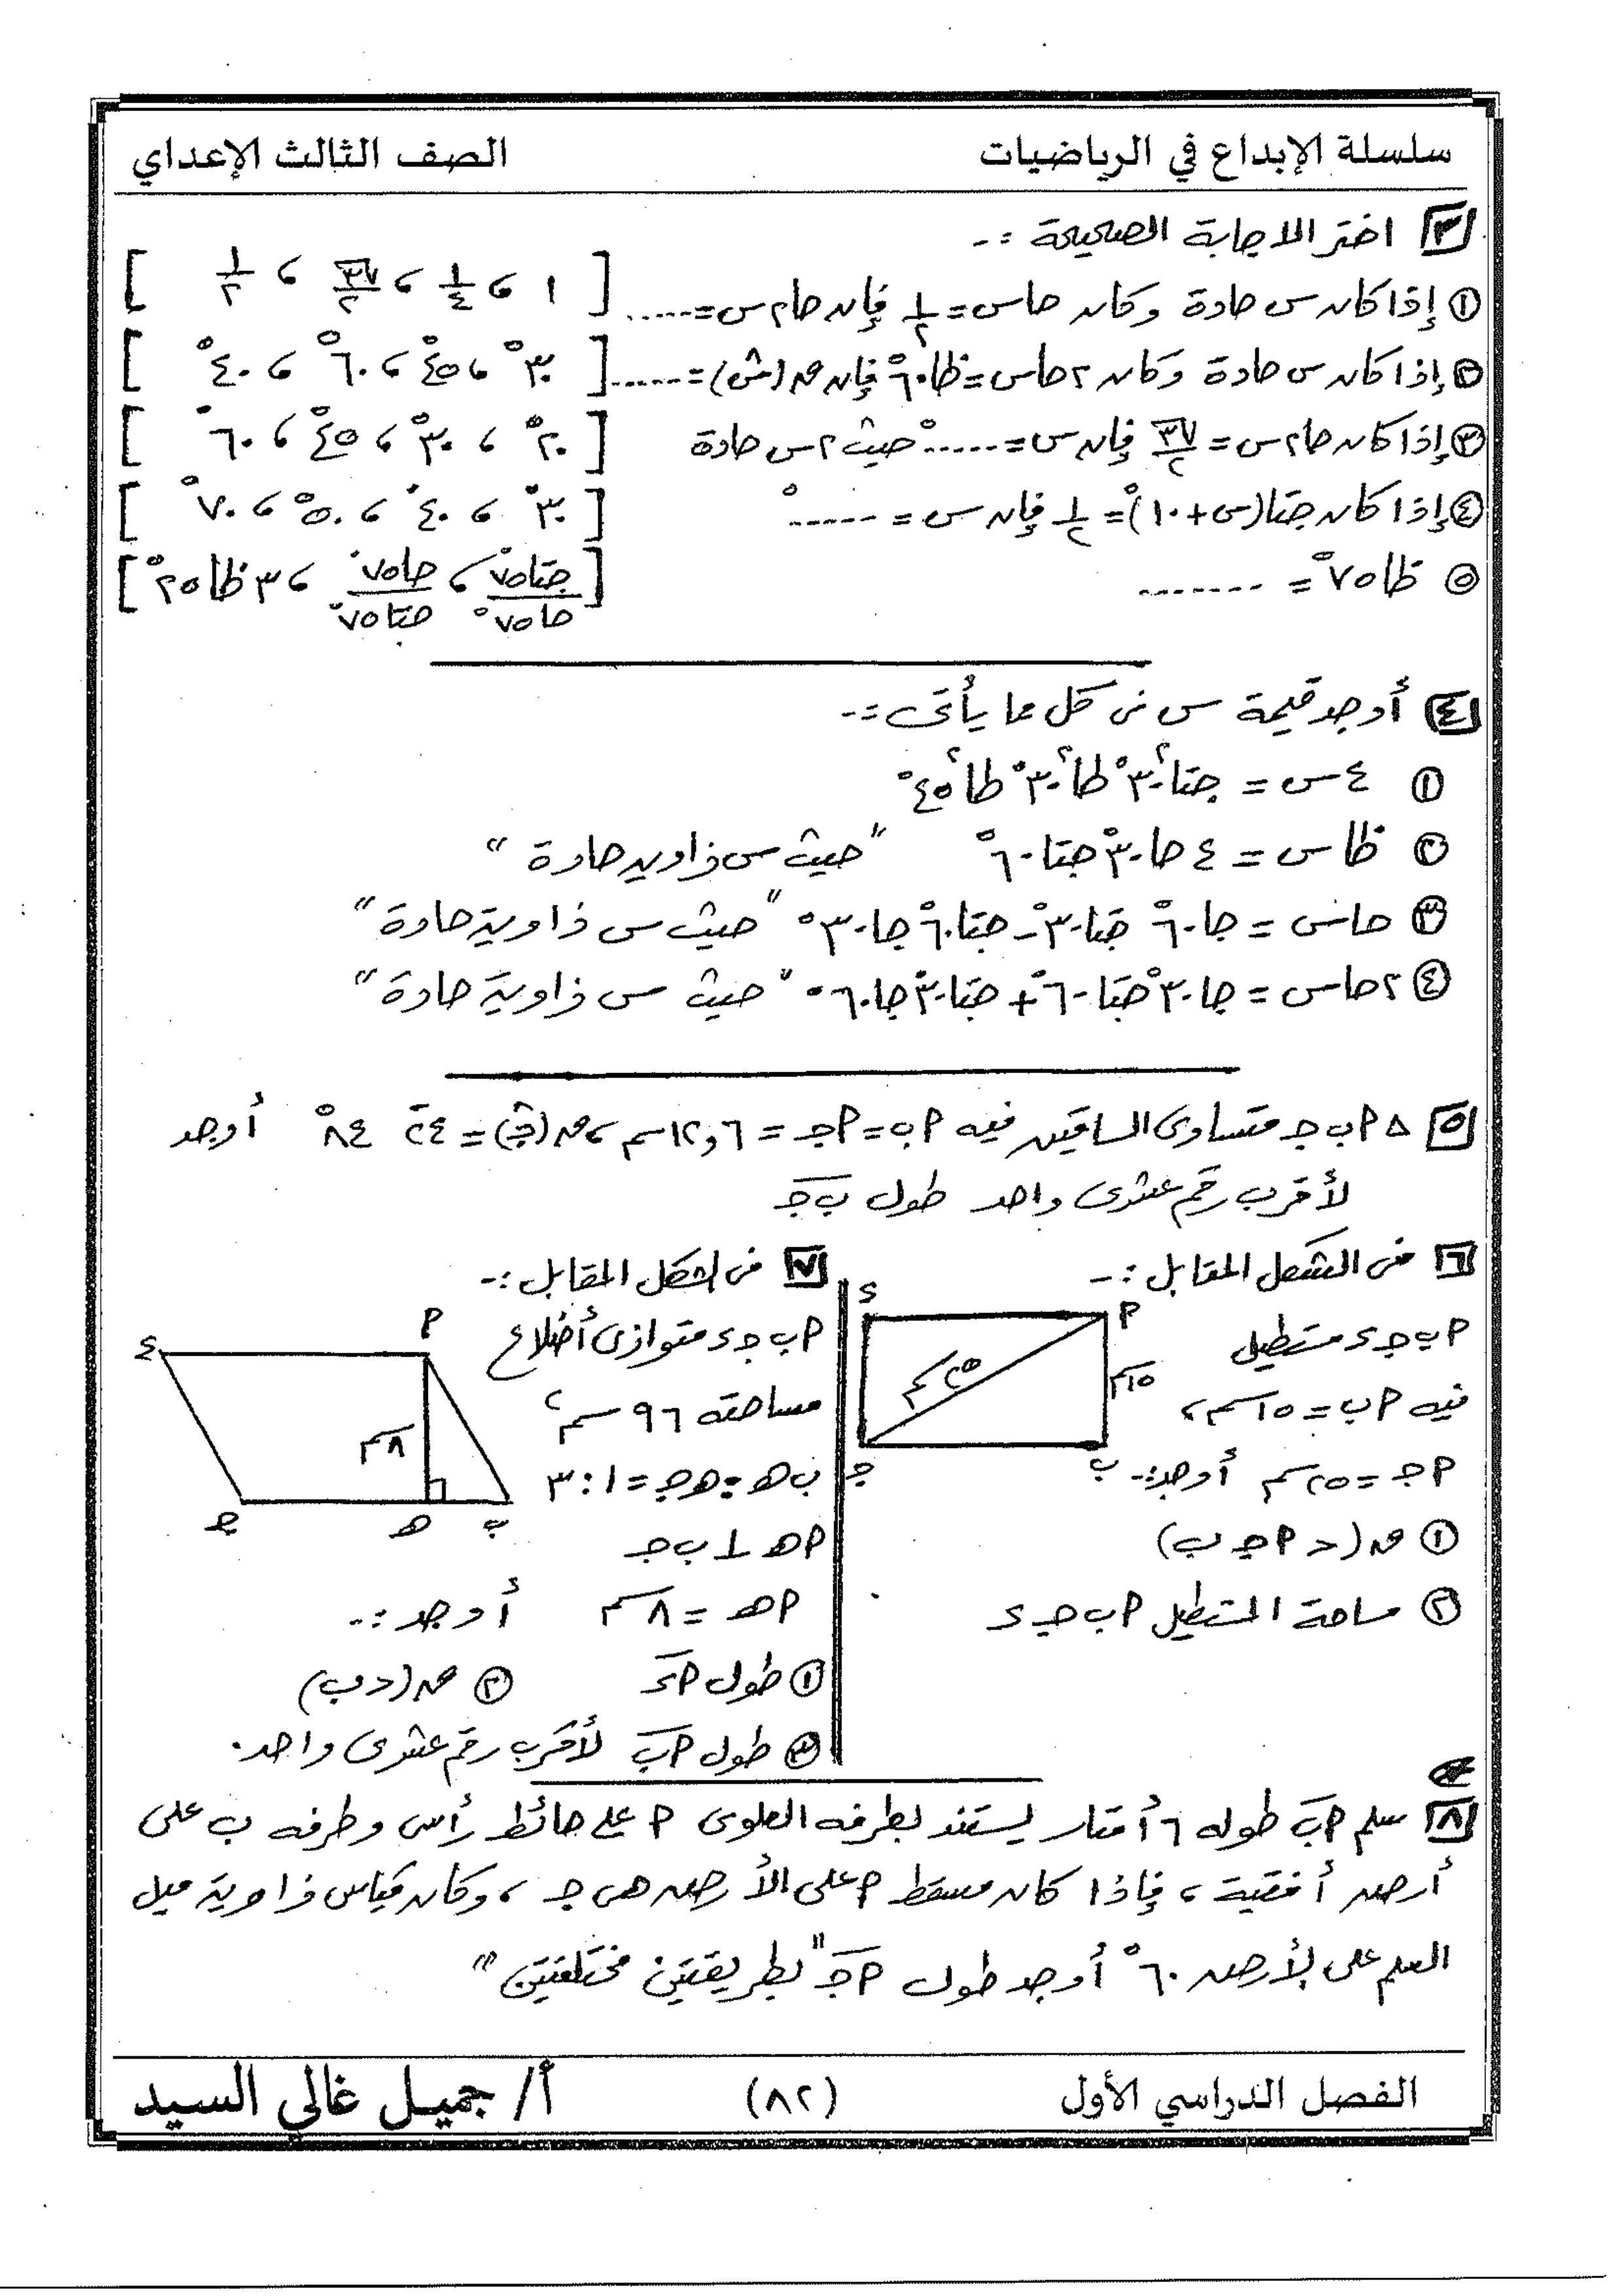 سلسلة الإبداع في الرياضيات
الصف الثالث الإعداي
٣ اختر الاجابة الصحيحة :-
① إذا كان س حادة وكان حاس = ١/٢ فإن حا٢س = ..... [ ١ ، ١/٤ ، √٣/٢ ، ١/٢ ]
② إذا كان س حادة وكان ٢حاس = ظا٦٠° فإن ق(س) = ..... [ ٣٠° ، ٤٥° ، ٦٠° ، ٤٠° ]
③ إذا كان حا٢س = √٣/٢ فإن س = .....° حيث ٢س حادة [ ٢٠° ، ٣٠° ، ٤٥° ، ٦٠° ]
④ إذا كان جتا(س+١٠)° = ١/٢ فإن س = .....° [ ٣٠° ، ٤٠° ، ٥٠° ، ٧٠° ]
⑤ ظا٧٥° = ....... [ جتا٧٥°/حا٧٥° ، حا٧٥°/جتا٧٥° ، ٣ظا٢٥° ]
٤ أوجد قيمة س فى كل مما يأتى :-
① ٤س = جتا²٣٠° ظا²٣٠° ظا²٤٥°
② ظاس = ٤حا٣٠° جتا٦٠° "حيث س زاويه حادة"
③ حاس = جا٦٠° جتا٣٠° - جتا٦٠° جا٣٠° "حيث س زاوية حادة"
④ ٢حاس = جا٣٠° جتا٦٠° + جتا٣٠° جا٦٠° "حيث س زاوية حادة"
٥ △ ٢ب جـ متساوى الساقين فيه ٢ب = ٢جـ = ١٢,٦سم ، ق(جـ) = ٢٤َ ٨٤° أوجد
لأقرب رقم عشرى واحد طول ب جـ
٦ فى الشكل المقابل :-
٢ب جـ د مستطيل
فيه ٢ب = ١٥سم ،
٢جـ = ٢٥سم أوجد :-
① ق(> ٢جـ ب)
② مساحة المستطيل ٢ب جـ د
د
٢
٢٥سم
١٥سم
ب
جـ
٧ فى الشكل المقابل :-
٢ب جـ د متوازى أضلاع
مساحته ٩٦ سم²
ب هـ : هـ جـ = ١ : ٣
٢هـ ⊥ ب جـ
٢هـ = ٨سم أوجد :-
① طول ٢د ② ق(>ب)
③ طول ٢ب لأقرب رقم عشرى واحد.
٢
د
٨سم
جـ
هـ
ب
٨ سلم ٢ب طوله ٦ أمتار يستند بطرفه العلوى ٢ على حائط رأسى وطرفه ب على
أرض أفقية ، فإذا كان مسقط ٢ على الأرض هى جـ ، وكان قياس زاوية ميل
السلم على الأرض ٦٠° أوجد طول ٢جـ "بطريقتين مختلفتين"
الفصل الدراسي الأول
(٨٢)
أ/ جميل غالي السيد